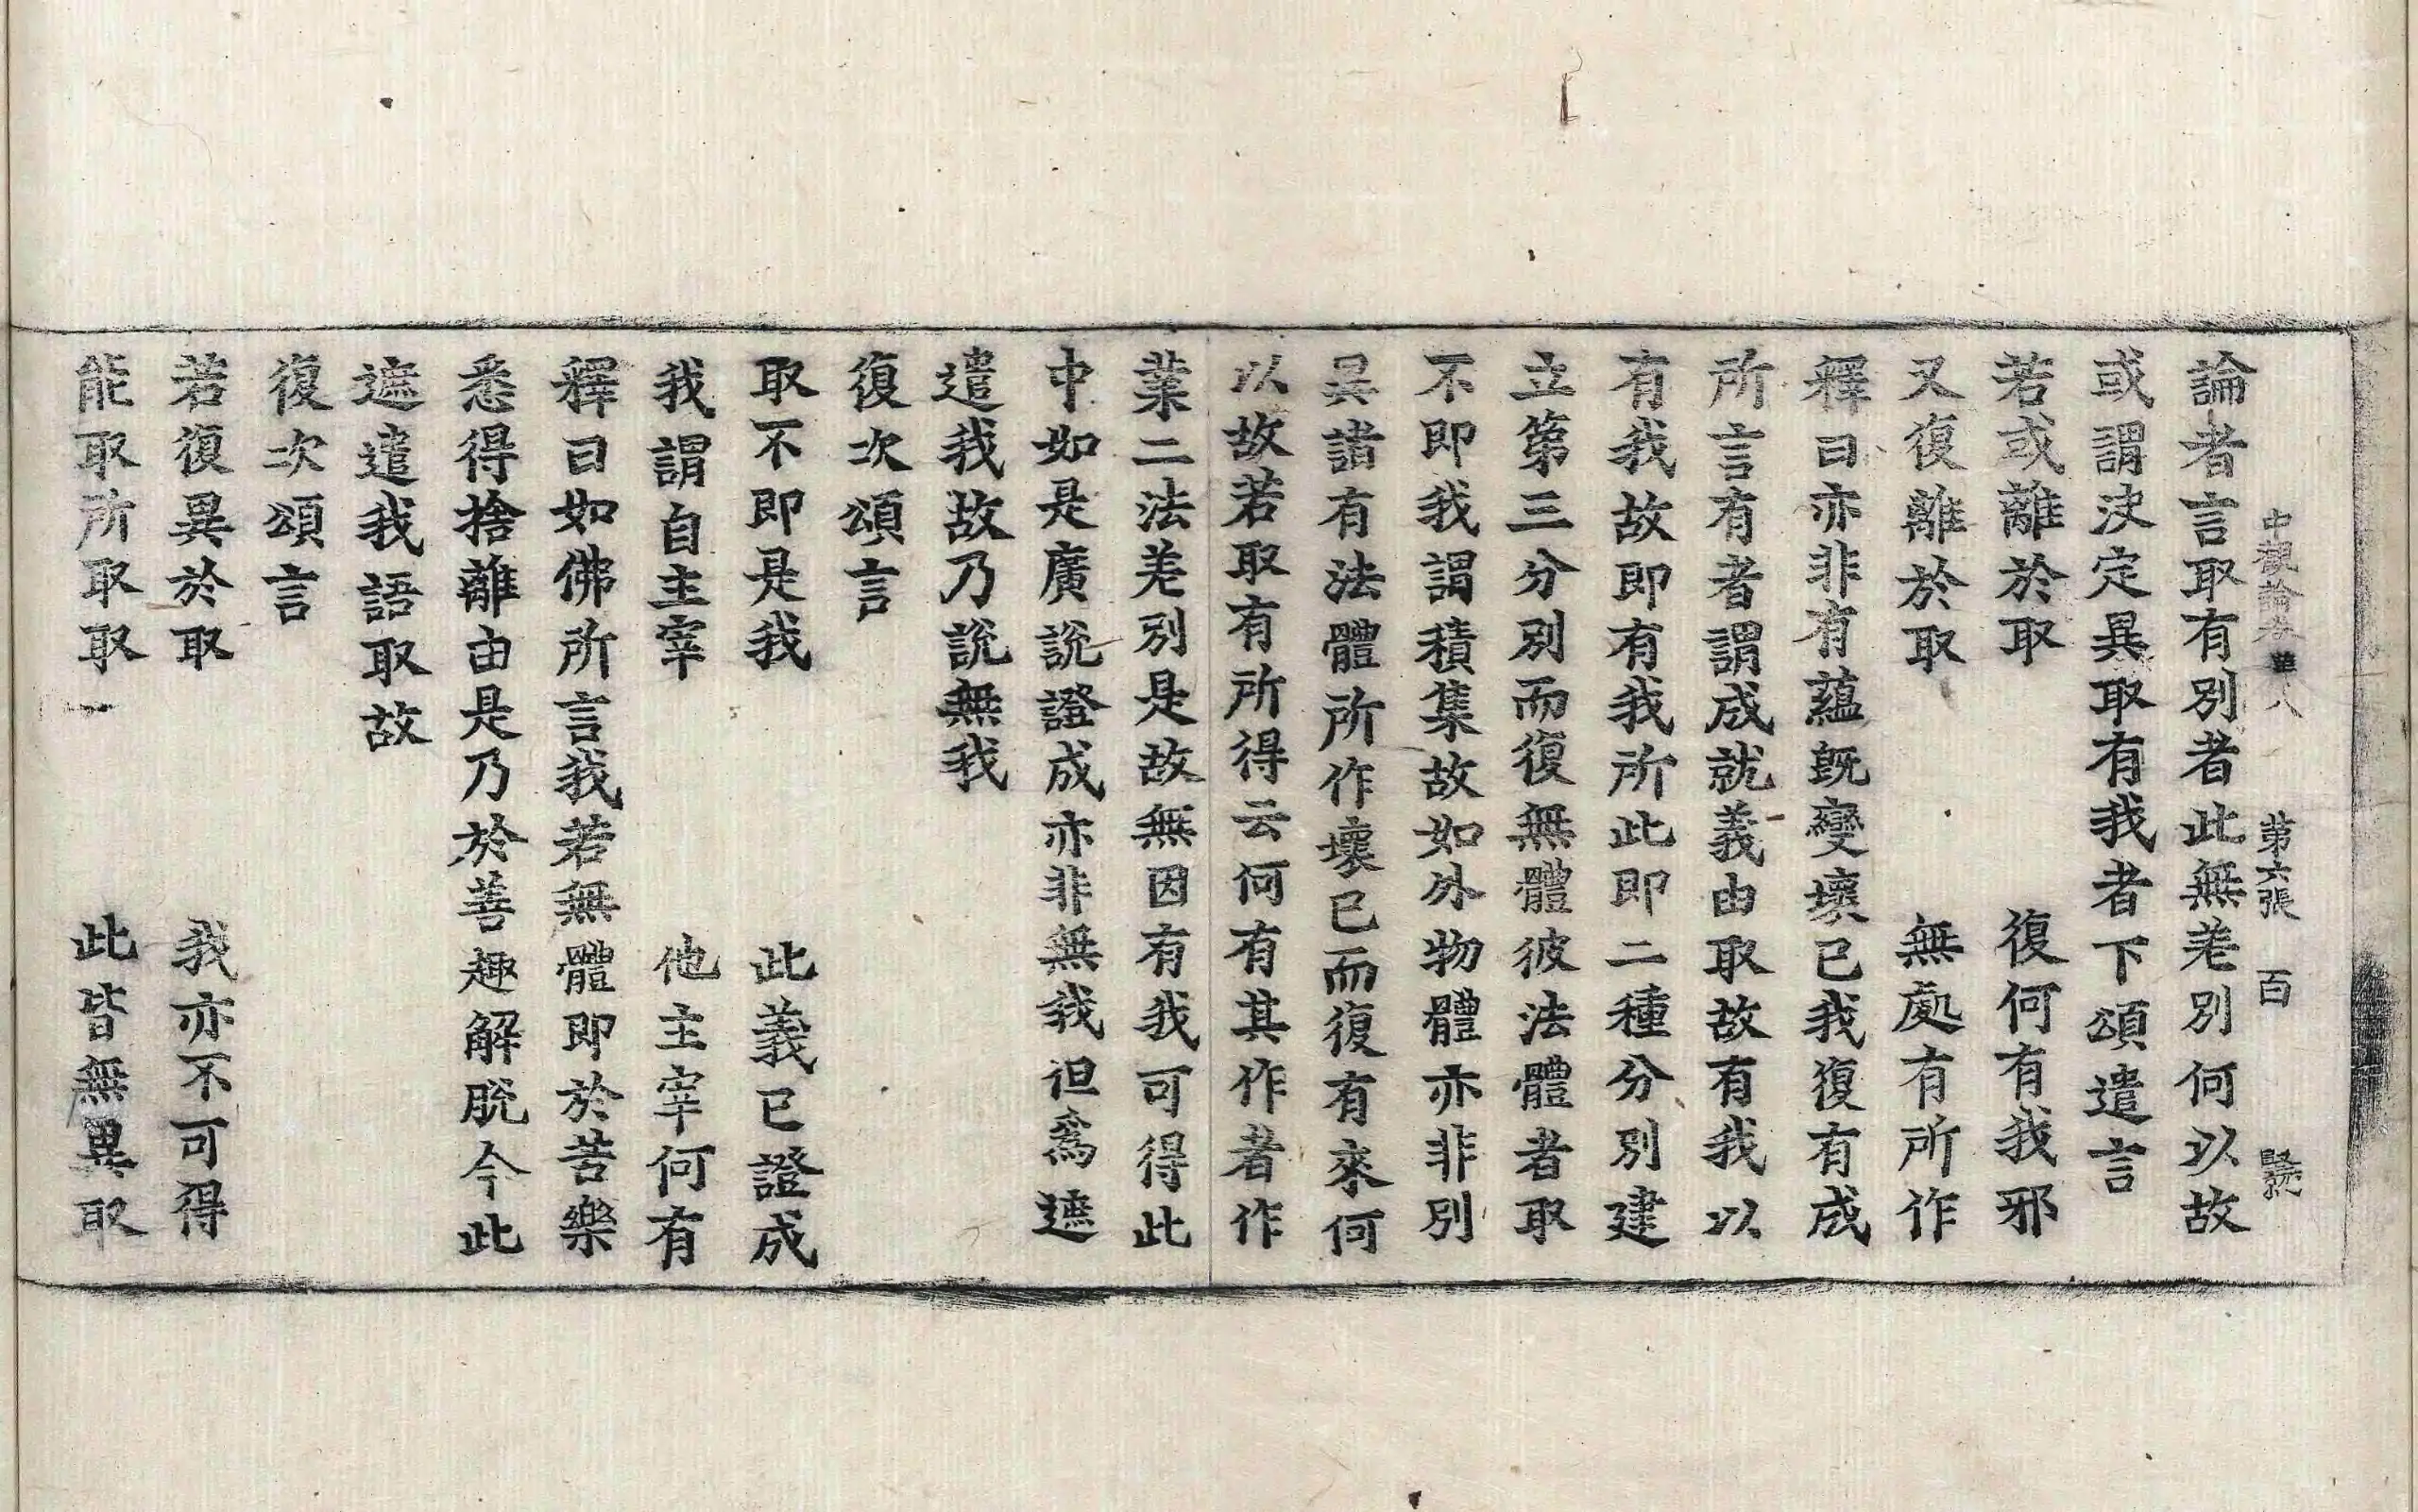 中觀論卷第八 第六張 百
論者言取有別者此無差別何以故
或謂決定異取有我者下頌遣言
若或離於取 復何有我邪
又復離於取 無處有所作
釋曰亦非有蘊旣變壞已我復有成
所言有者謂成就義由取故有我以
有我故即有我所此即二種分別建
立第三分別而復無體彼法體者取
不即我謂積集故如外物體亦非別
異諸有法體所作壞已而復有來何
以故若取有所得云何有其作者作
業二法差別是故無因有我可得此
中如是廣說證成亦非無我但爲遮
遣我故乃說無我
復次頌言
取不即是我 此義已證成
我謂自主宰 他主宰何有
釋曰如佛所言我若無體即於苦樂
悉得捨離由是乃於善趣解脫今此
遮遣我語取故
復次頌言
若復異於取 我亦不可得
能取所取取一 此皆無異取